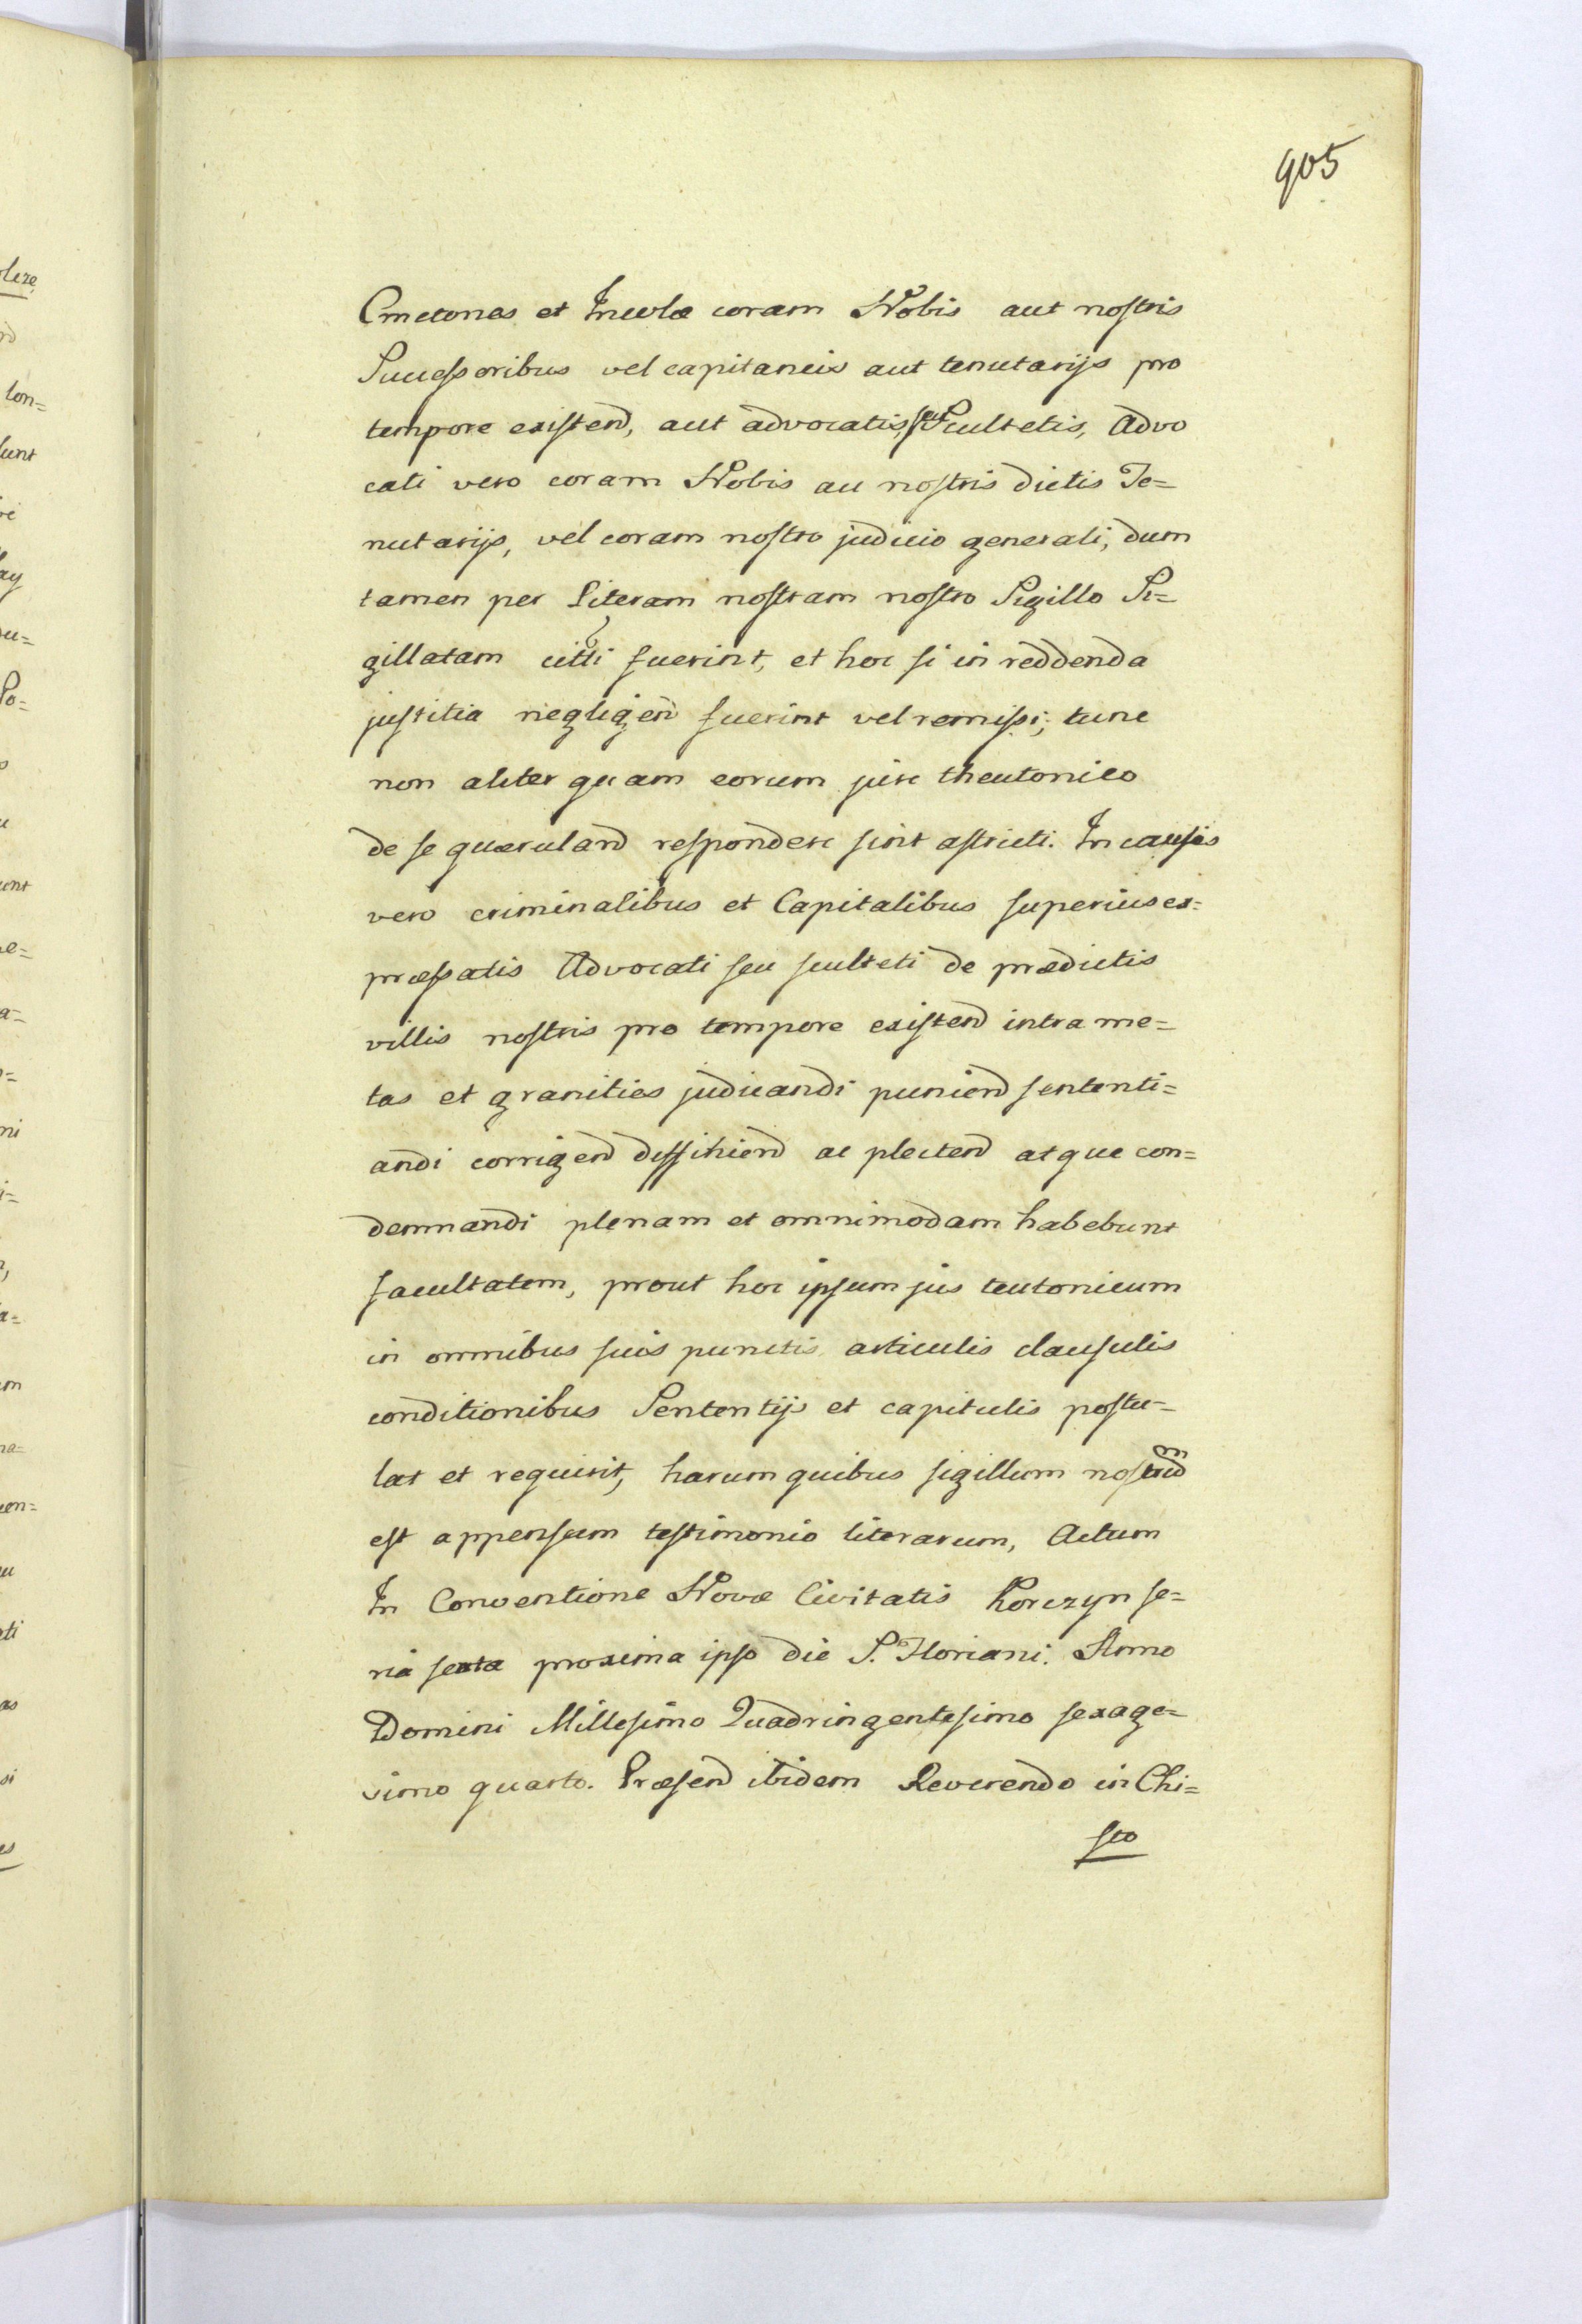 905
Cmetones et Incolæ coram Nobis aut nostris
Successoribus vel capitaneis aut tenutarijs pro
tempore existend, aut advocatis, seu Scultetis, Advo
cati vero coram Nobis au nostris dictis Te=
nutarijs, vel coram nostro judicio generali, dum
tamen per Literam nostram nostro Sigillo Si=
gillatam citti fuerint, et hoc si in reddenda
justitia negligen fuerint vel remissi; tunc
non aliter quam eorum jure theutonico
de se quæruland respondere sint astricti. In causis
vero criminalibus et Capitalibus superius ex=
præssatis Advocati seu sculteti de prædictis
villis nostris pro tempore existend intra me=
tas et granities judicandi puniend sententi=
andi corrigend deffihiend ac plectend atque con=
demnandi plenam et omnimodam habebunt
facultatem, prout hoc ipsum jus teutonicum
in omnibus suis punctis articulis clausulis
conditionibus Sententijs et capitulis postu=
lat et requirit, harum quibus sigillum nostrum
est appensum testimonio literarum, Actum
In Conventione Novæ Civitatis Korczyn fe=
ria sexta proxima ipso die S. Floriani. Anno
Domini Millesimo Quadringentesimo sexage=
simo quarto. Præsend ibidem Reverendo in Chi=
sto